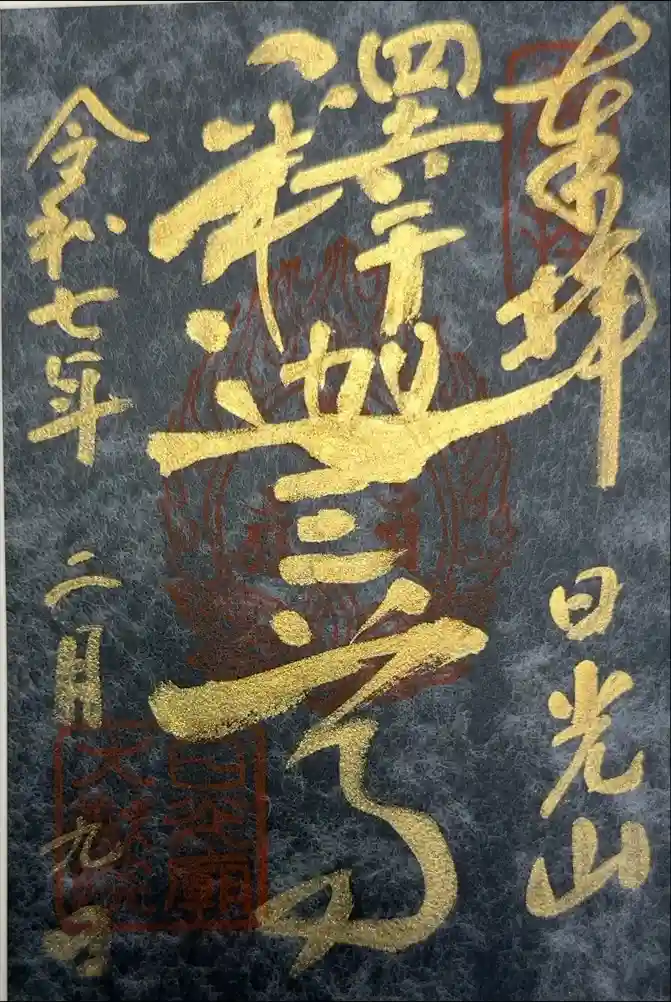 奉拝
日光山
釋迦三尊
令和七年 二月九日
日光廟
大猷院